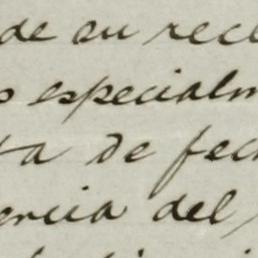 de su recl
o especialm
ta de fech
encia del